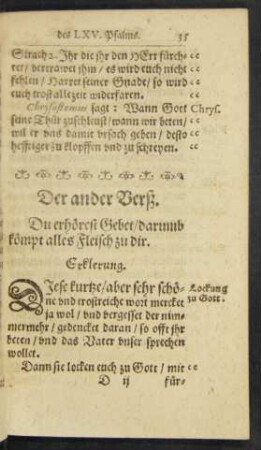 des LXV. Psalms. 35
Sirach 2. Ihr die ihr den HErr fürch-
tet / vertrawet ihm / es wird euch nicht
fehlen / Harret seiner Gnade / so wird
euch trost allezeit widerfaren.
Chrysostomus sagt: Wann Gott Chrys.
seine Thür zuschleust / wann wir beten /
wil er vns damit vrsach geben / desto
hefftiger zu klopffen vnd zu schreyen.
Der ander Verß.
Du erhörest Gebet / darumb
kömpt alles Fleisch zu dir.
Erklerung.
DIese kurtze / aber sehr schö- Lockung
ne vnd trostreiche wort mercket zu Gott.
ja wol / vnd vergesset der nim-
mermehr / gedencket daran / so offt ihr
beten / vnd das Vater vnser sprechen
wollet.
Dann sie locken euch zu Gott / mit
D ij für-